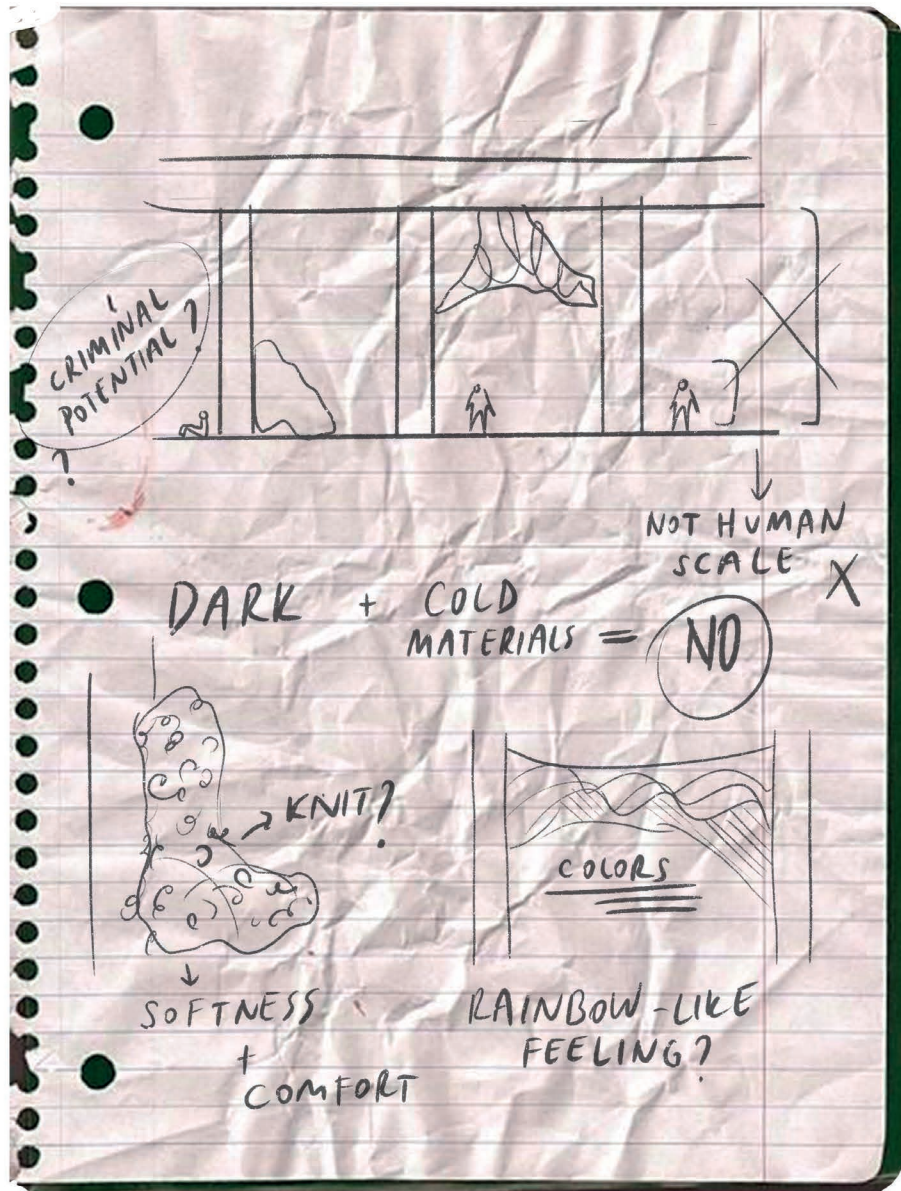 CRIMINAL
POTENTIAL ?
?
NOT HUMAN
SCALE X
DARK + COLD
MATERIALS = NO
KNIT?
COLORS
SOFTNESS
+
COMFORT
RAINBOW-LIKE
FEELING?